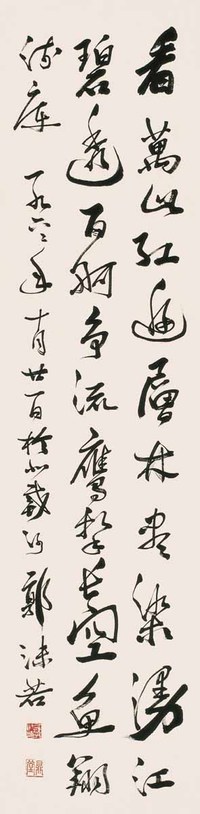 看萬山紅遍層林盡染漫江
碧透百舸争流鷹擊長空魚翔
淺底 一九六二年十月廿一日於北戴河 郭沫若